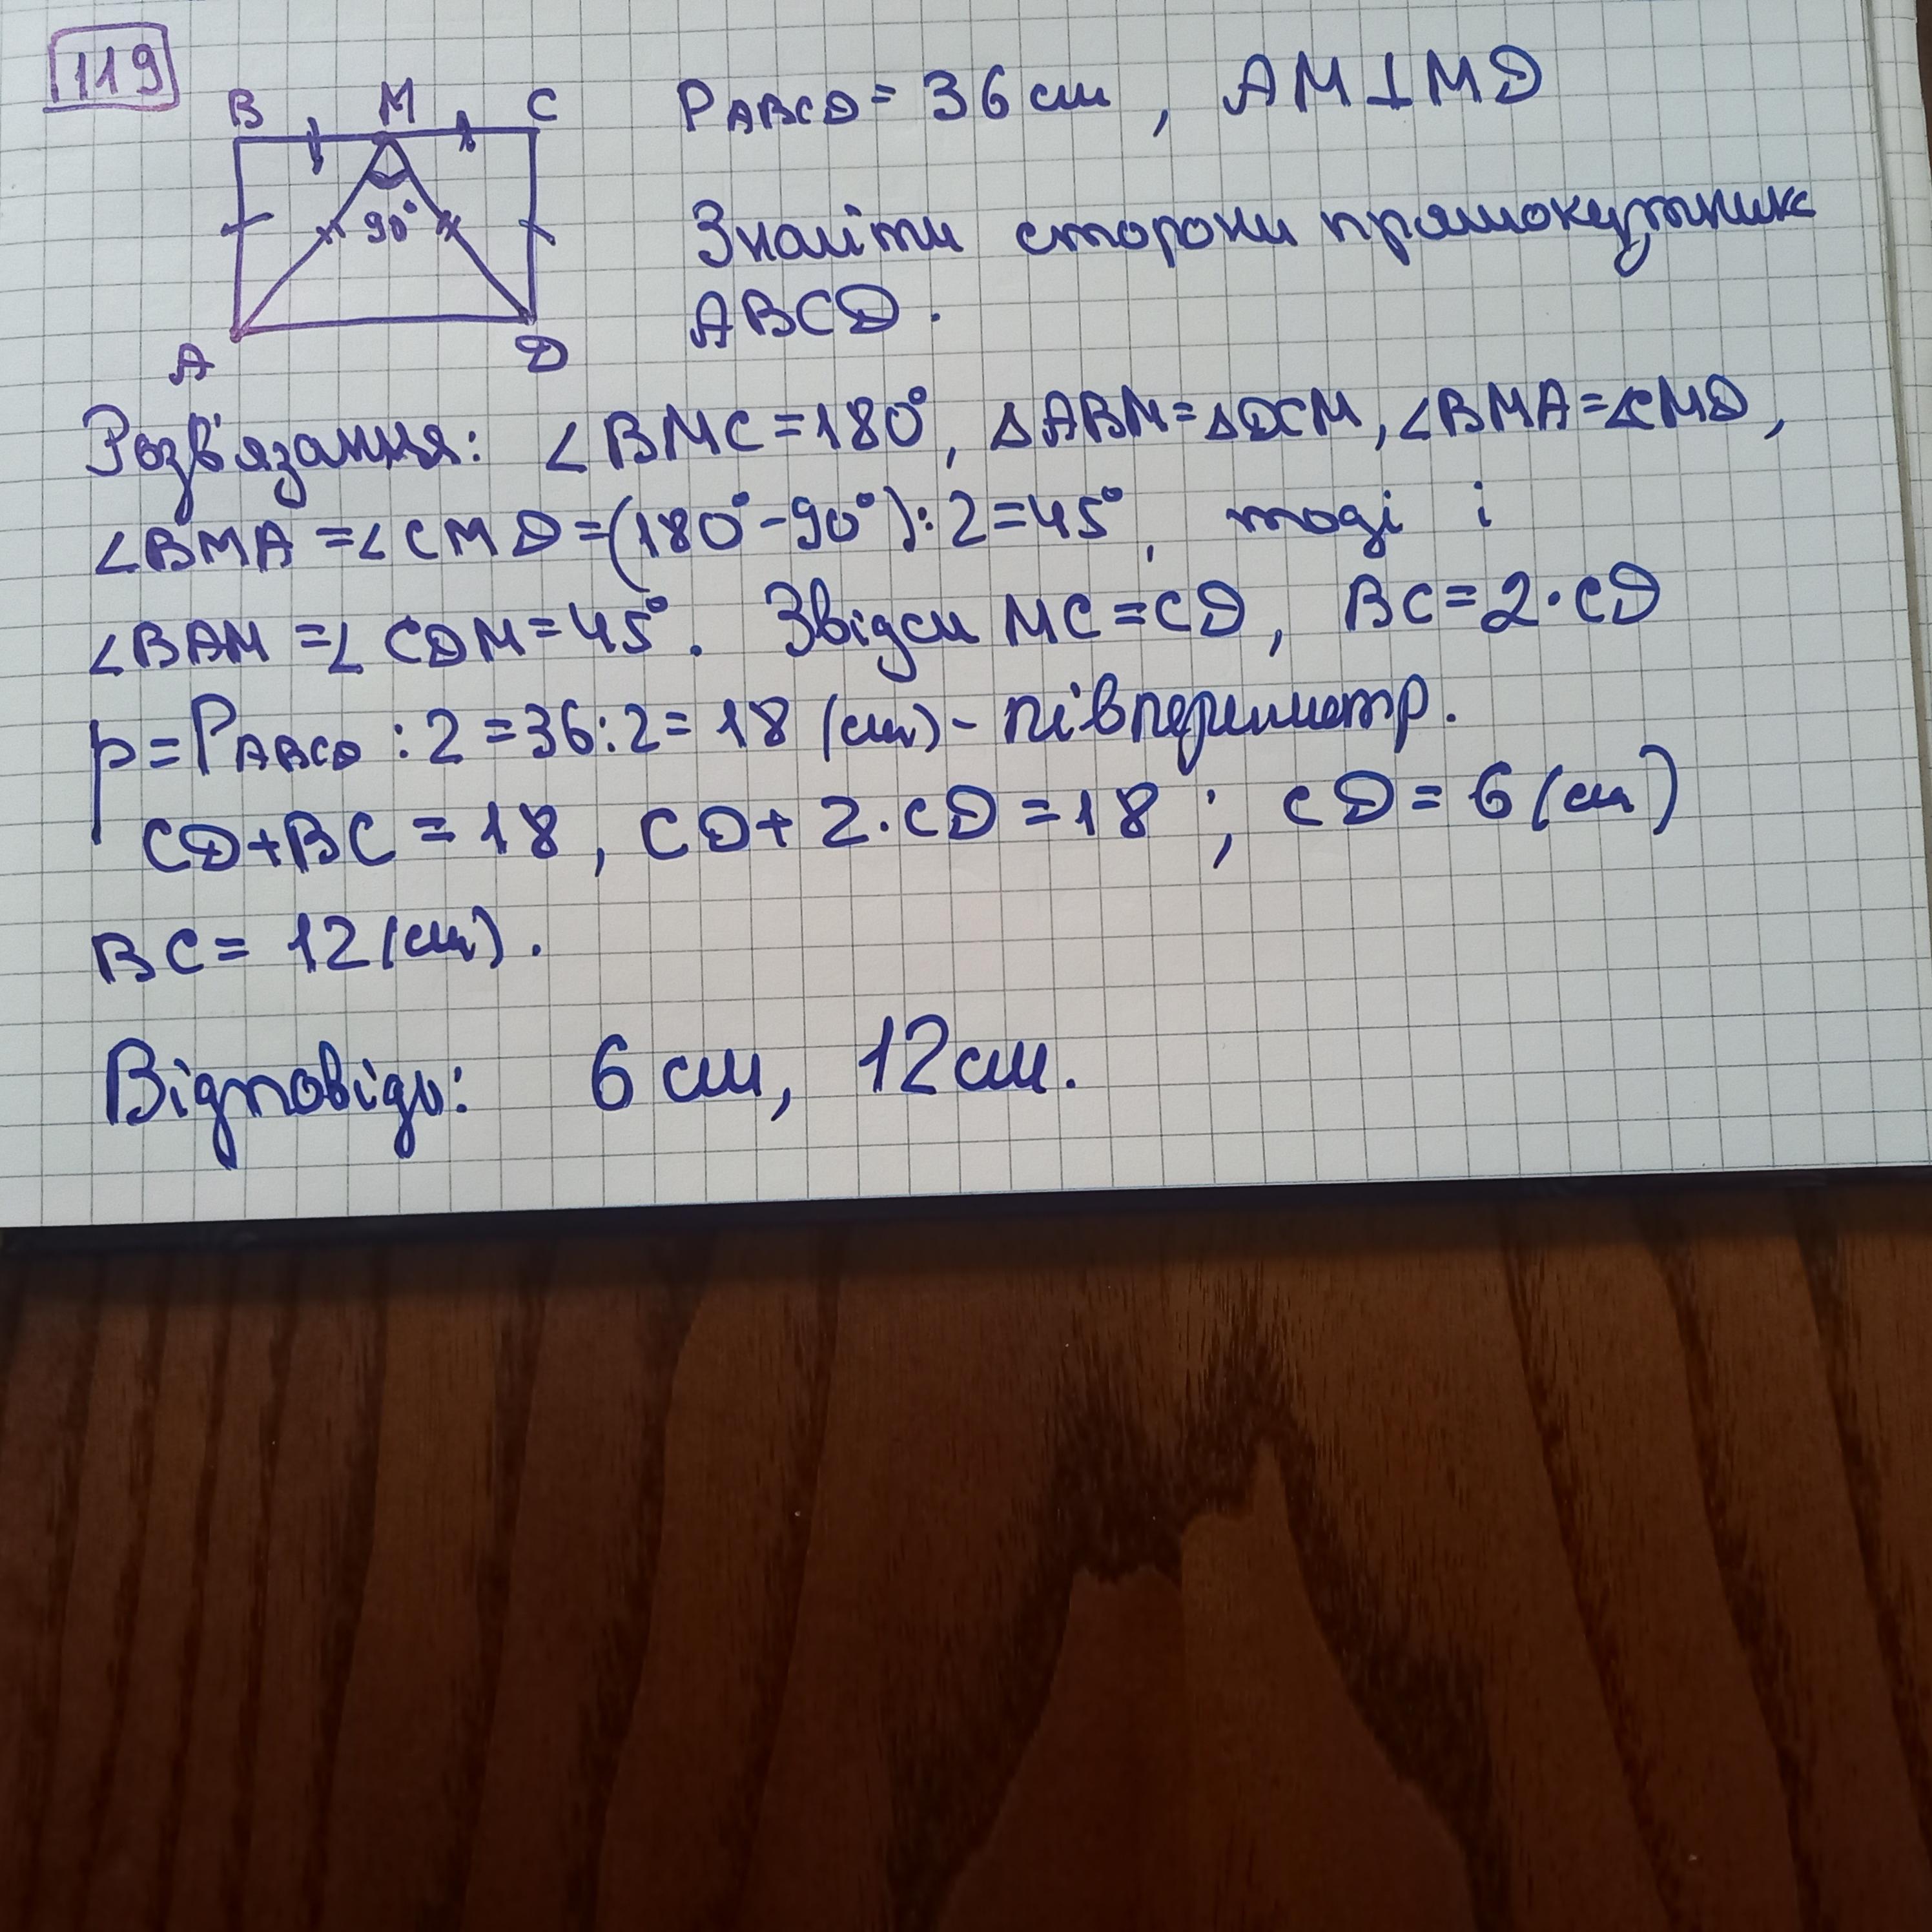 119
B M C
90°
A D
P ABCD = 36 см, AM⊥MD
Знайти сторони прямокутник
ABCD.
Розв'язання: ∠BMC=180°, △ABM=△DCM, ∠BMA=∠CMD,
∠BMA=∠CMD=(180°-90°):2=45°, тоді і
∠BAM=∠CDM=45°. Звідси MC=CD, BC=2·CD
p=P ABCD :2=36:2=18 (см)- півпериметр.
CD+BC=18, CD+2·CD=18; CD=6(см)
BC=12(см).
Відповідь: 6 см, 12см.